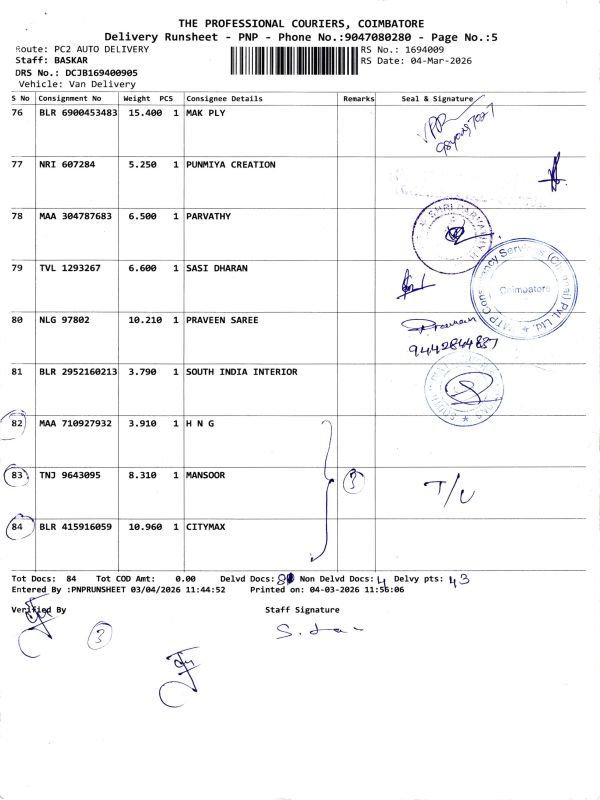 THE PROFESSIONAL COURIERS, COIMBATORE
Delivery Runsheet - PNP - Phone No.:9047080280 - Page No.:5
Route: PC2 AUTO DELIVERY RS No.: 1694009
Staff: BASKAR RS Date: 04-Mar-2026
DRS No.: DCJB169400905
Vehicle: Van Delivery
S No Consignment No Weight PCS Consignee Details Remarks Seal & Signature
76 BLR 6900453483 15.400 1 MAK PLY
77 NRI 607284 5.250 1 PUNMIYA CREATION
78 MAA 304787683 6.500 1 PARVATHY
79 TVL 1293267 6.600 1 SASI DHARAN
Coimbatore
80 NLG 97802 10.210 1 PRAVEEN SAREE Praveen
9442844887
81 BLR 2952160213 3.790 1 SOUTH INDIA INTERIOR
82 MAA 710927932 3.910 1 H N G
83 TNJ 9643095 8.310 1 MANSOOR 3 T/U
84 BLR 415916059 10.960 1 CITYMAX
Tot Docs: 84 Tot COD Amt: 0.00 Delvd Docs: Non Delvd Docs: 4 Delvy pts: 43
Entered By :PNPRUNSHEET 03/04/2026 11:44:52 Printed on: 04-03-2026 11:56:06
Verified By Staff Signature
3